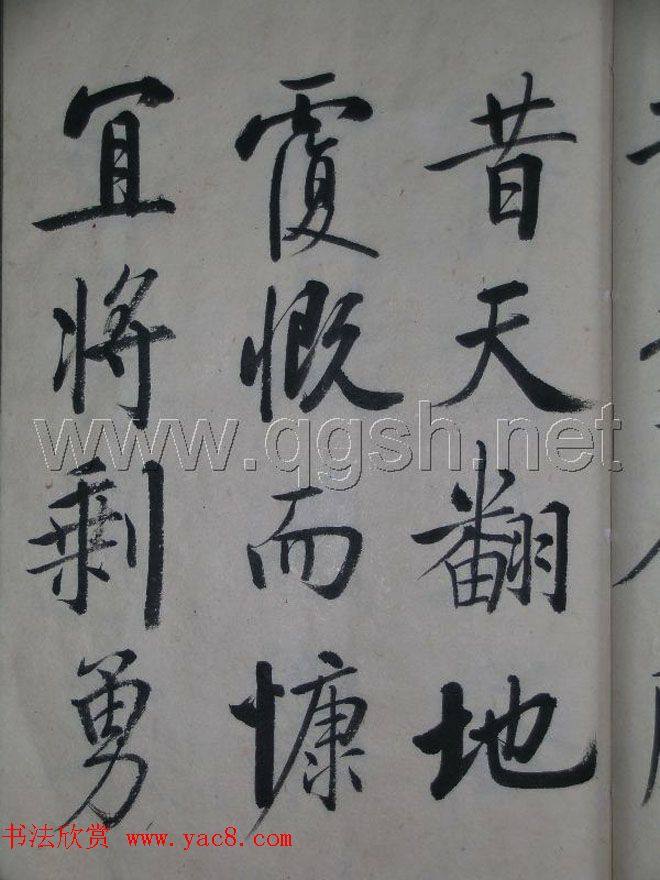 昔天翻地
覆慨而慷
宜将剩勇
www.qgsh.net
书法欣赏 www.yac8.com